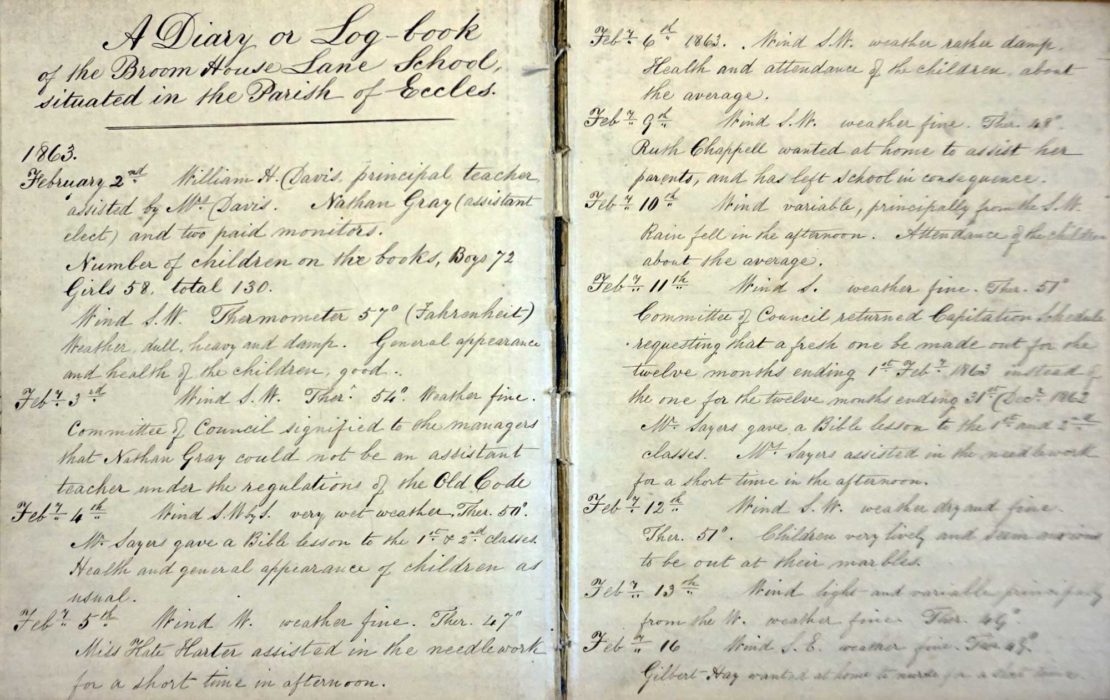 A Diary or Log-book
of the Broom House Lane School,
situated in the Parish of Eccles.
1863.
February 2nd William H. Davis, principal teacher,
assisted by Mrs Davis. Nathan Gray (assistant
elect) and two paid monitors.
Number of children on the books, Boys 72
Girls 58, total 130.
Wind S.W. Thermometer 57° (Fahrenheit)
Weather, dull, heavy and damp. General appearance
and health of the children, good.
Feby 3rd Wind S.W. Ther. 54°. Weather fine.
Committee of Council signified to the managers
that Nathan Gray could not be an assistant
teacher under the regulations of the Old Code
Feby 4th Wind S.W by S. very wet weather, Ther. 50°.
Mr Sayers gave a Bible lesson to the 1st & 2nd classes.
Health and general appearance of children as
usual.
Feby 5th Wind W. weather fine. Ther. 47°
Miss Kate Harter assisted in the needlework
for a short time in afternoon.
Feby 6th 1863. Wind S.W. weather rather damp.
Health and attendance of the children about
the average.
Feby 9th Wind S.W. weather fine. Ther. 48°
Ruth Chappell wanted at home to assist her
parents, and has left School in consequence.
Feby 10th Wind variable, principally from the S.W.
Rain fell in the afternoon. Attendance of the children
about the average.
Feby 11th Wind S. weather fine. Ther. 51°
Committee of Council returned Capitation Schedule
requesting that a fresh one be made out for the
twelve months ending 1st Feby 1863 instead of
the one for the twelve months ending 31st Decr 1862
Mr Sayers gave a Bible lesson to the 1st and 2nd
classes. Mrs Sayers assisted in the needlework
for a short time in the afternoon.
Feby 12th Wind S.W. weather dry and fine.
Ther. 51°. Children very lively and seem anxious
to be out at their marbles.
Feby 13th Wind light and variable principally
from the W. weather fine. Ther.
Feby 16 Wind S.E. weather fine.
Gilbert Hay wanted at home to nurse for a